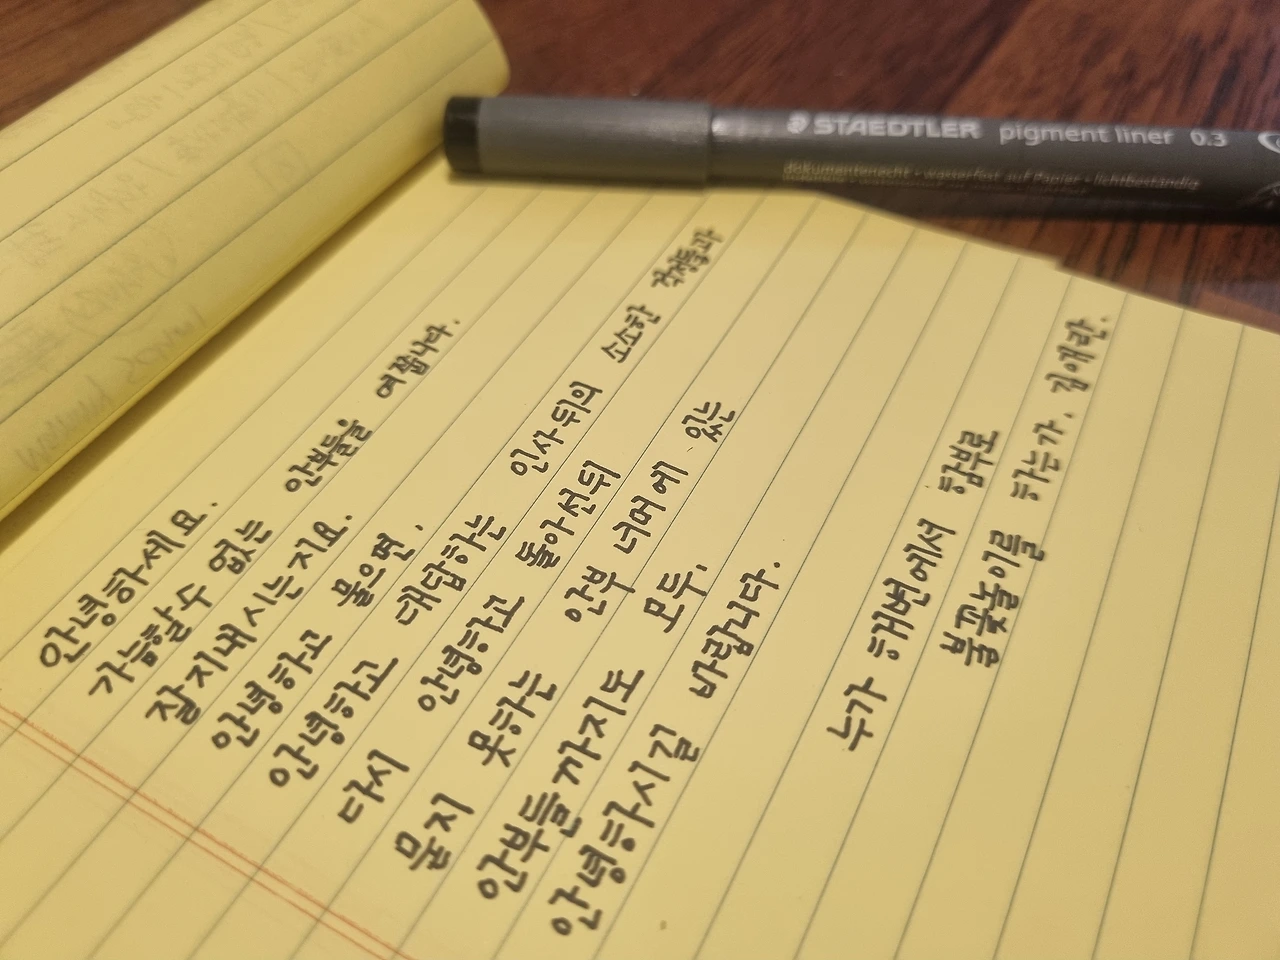 STAEDTLER pigment liner 0.3
dokumentenecht · wasserfest auf Papier · lichtbeständig
안녕하세요.
가늠할 수 없는 안부들을 여쭙니다.
잘 지내시는지요.
안녕하고 물으면,
안녕하고 대답하는 인사 뒤의 소소한 걱정들과
다시 안녕하고 돌아선 뒤
묻지 못하는 안부 너머에 있는
안부들까지도 모두,
안녕하시길 바랍니다.
누가 해변에서 함부로
불꽃놀이를 하는가. 김애란.